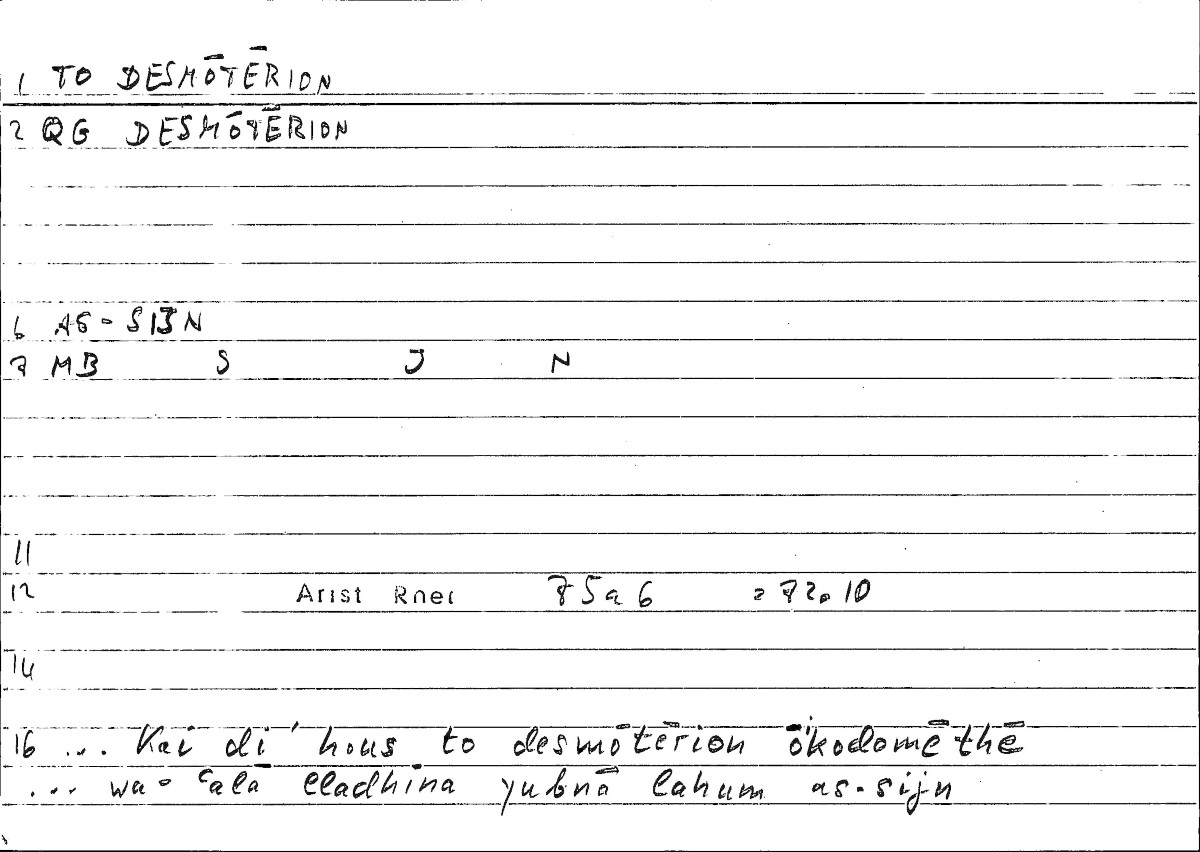 1 TO DESMŌTĒRION
2 QG DESMŌTĒRION
6 AS-SIJN
7 MB S J N
11
12 Arist Rhet 75a6 = 72.10
14
16 ... Kai di' hous to desmōtērion ōikodomēthē
... wa-ʿalā lladhīna yubnā lahum as-sijn